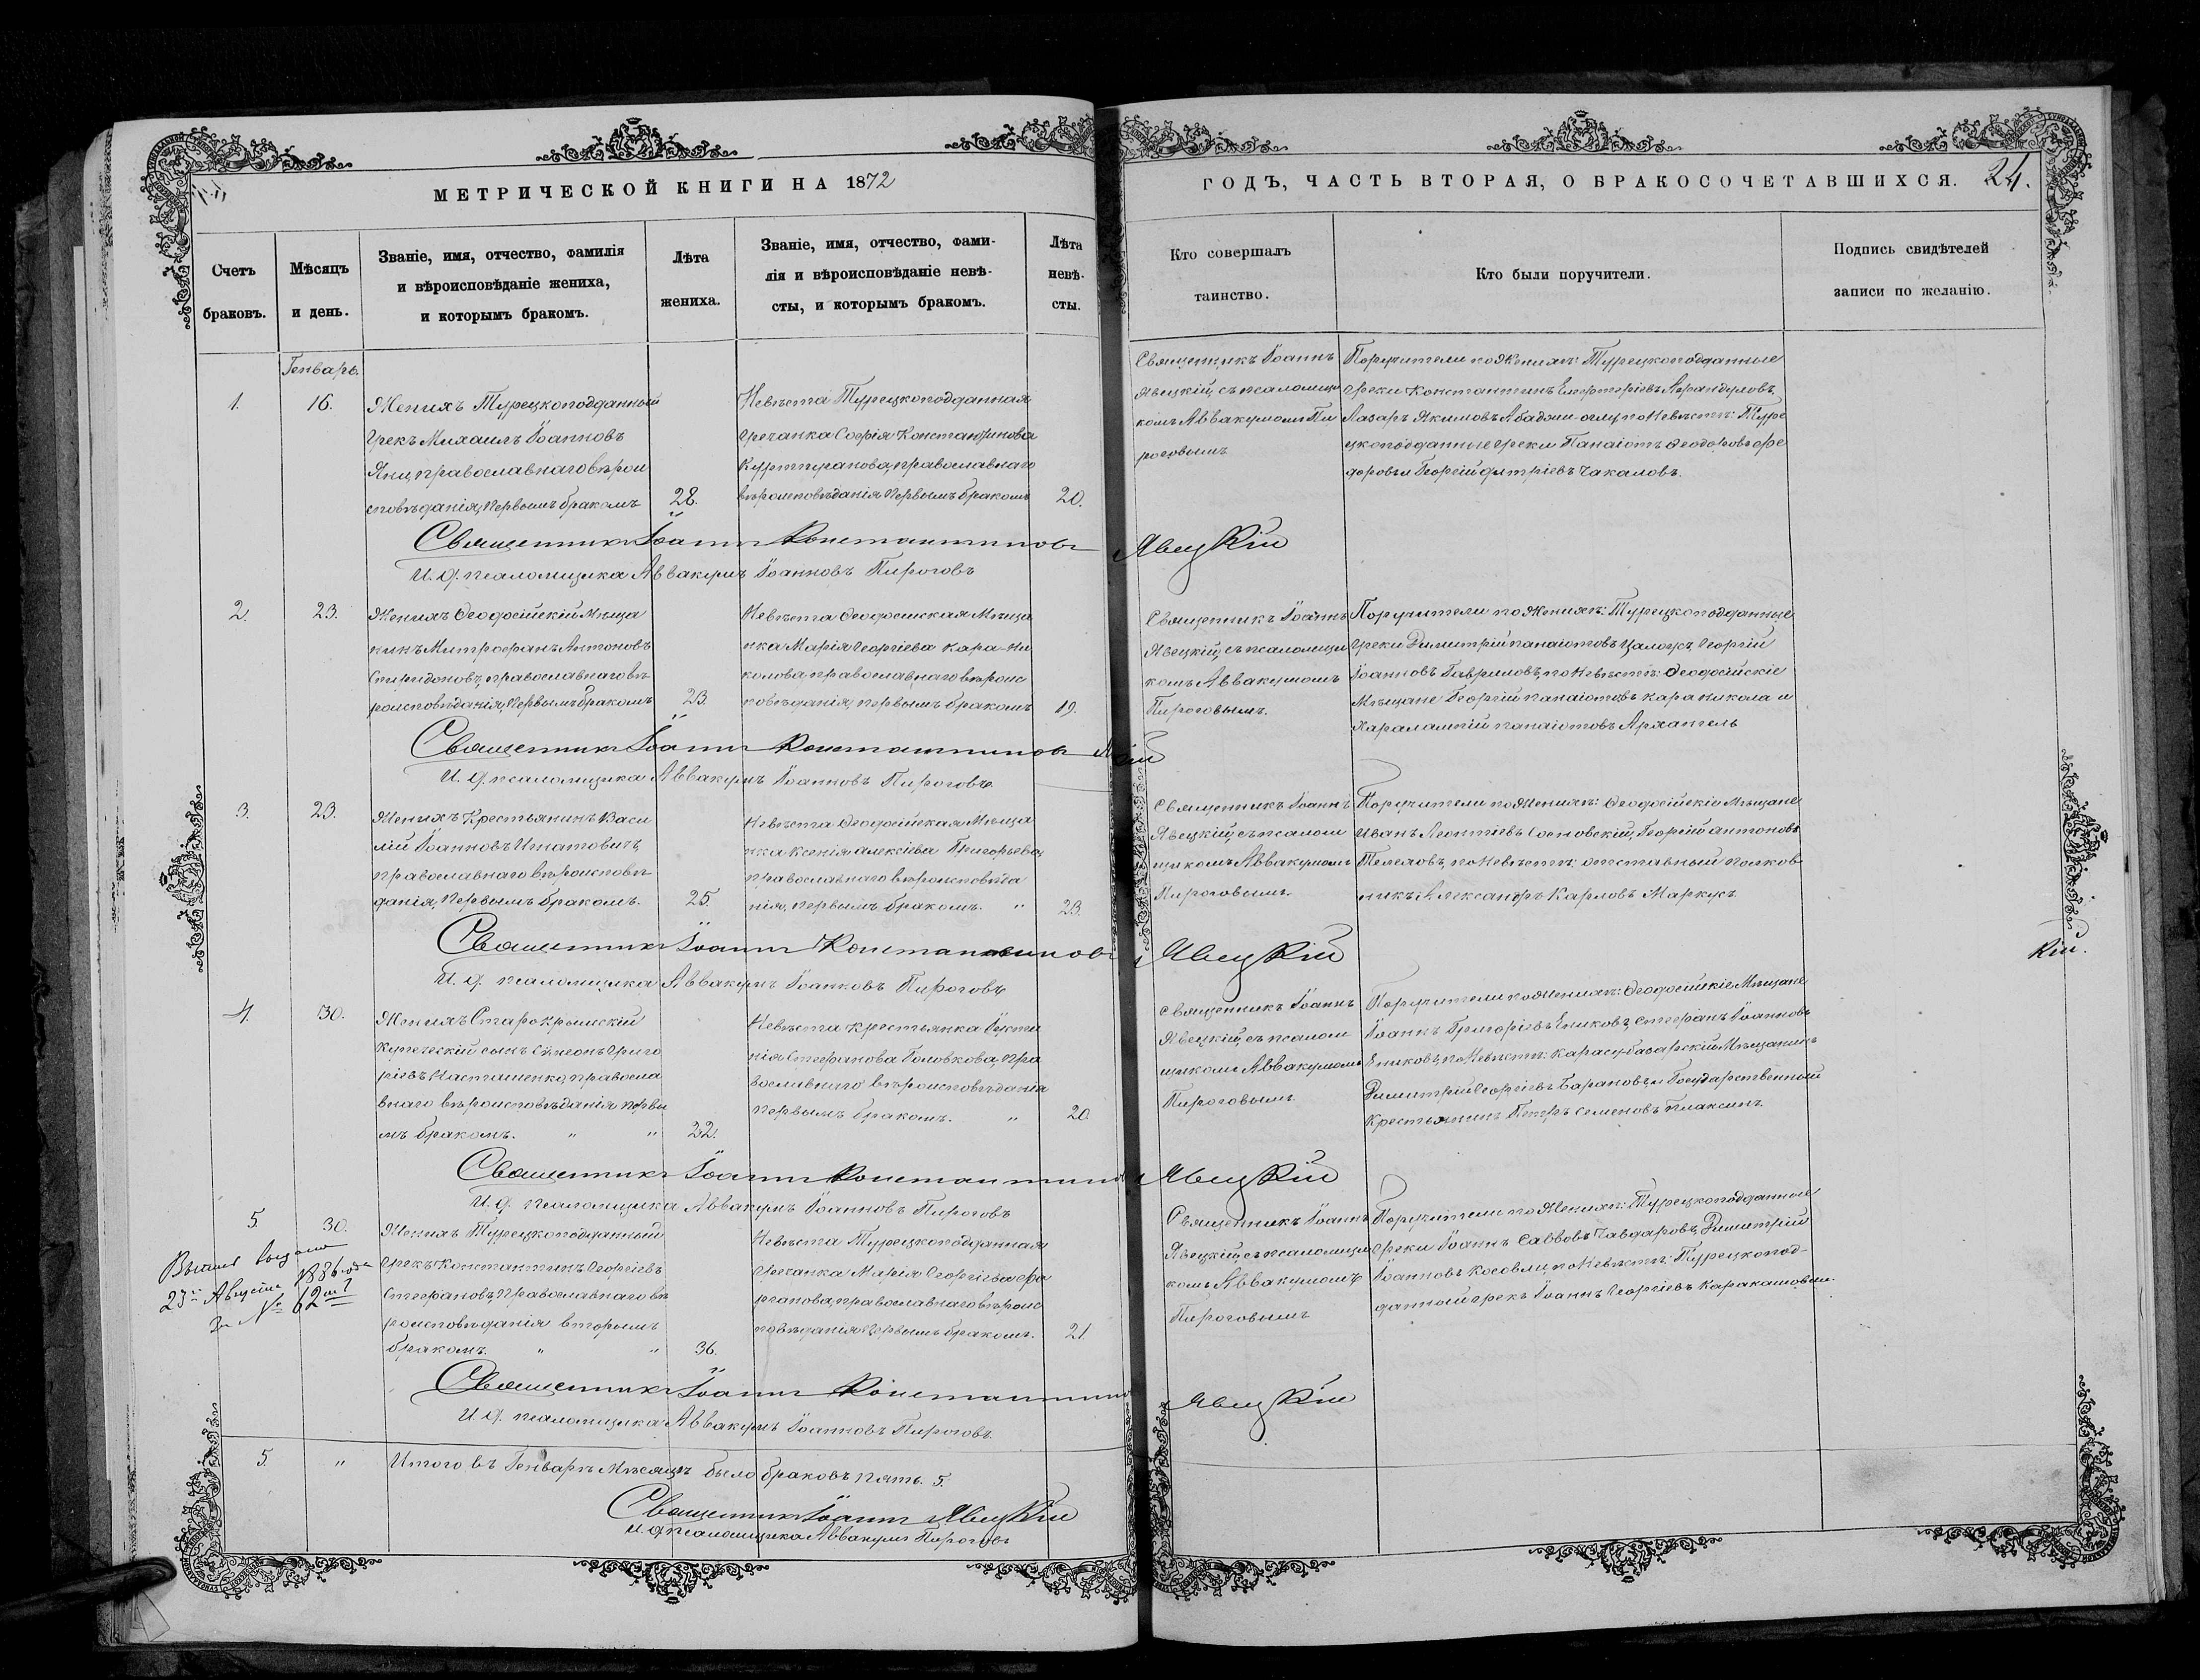 МЕТРИЧЕСКОЙ КНИГИ НА 1872
ГОДЪ, ЧАСТЬ ВТОРАЯ, О БРАКОСОЧЕТАВШИХСЯ. 24.
Счетъ
браковъ.
Мѣсяцъ
и день.
Званіе, имя, отчество, фамилія
и вѣроисповѣданіе жениха,
и которымъ бракомъ.
Лѣта
жениха.
Званіе, имя, отчество, фами-
лія и вѣроисповѣданіе невѣ-
сты, и которымъ бракомъ.
Лѣта
невѣ-
сты.
Кто совершалъ
таинство.
Кто были поручители.
Подпись свидѣтелей
записи по желанію.
Генварь.
1.
16.
Женихъ Турецкоподданный
Грекъ Михаилъ Іоанновъ
Яни, православнаго вѣрои
сповѣданія, первымъ бракомъ
28.
Невѣста Турецкоподданная
Гречанка Софія Константинова
православнаго
вѣроисповѣданія первымъ бракомъ
20.
Священникъ Іоаннъ
Явецкій, съ псаломщи
комъ Аввакумомъ Пи
роговымъ
Поручители по Женихѣ: Турецкоподданные
Греки Константинъ
Лазарь Якимовъ Абаджи-оглу, по Невѣстѣ: Туре
цкоподданные Греки Панаіотъ Ѳеодоровъ Ѳе
доровъ и Георгій Дмтріевъ Чакаловъ.
Священникъ Іоаннъ Константиновъ Явецкій
И. д. псаломщика Аввакумъ Іоанновъ Пироговъ
2.
23.
Женихъ Ѳеодосійскій Мѣща
нинъ Митрофанъ Антоновъ
Спиридоновъ, православнаго вѣ
роисповѣданія, первымъ бракомъ
23.
Невѣста Ѳеодосійская Мѣща
нка Марія Георгіева Кара-Ни
колова, православнаго вѣроис
повѣданія, первымъ бракомъ
19.
Священникъ Іоаннъ
Явецкій, съ псаломщи
комъ Аввакумомъ
Пироговымъ.
Поручители по Женихѣ: Турецкоподданные
Греки Димитрій Панаіотовъ Цалогъ, Георгій
Іоанновъ Гавриловъ, по Невѣстѣ: Ѳеодосійскіе
Мѣщане Георгій Панаіотовъ Кара Никола и
Харалампій Панаіотовъ Архангель
Священникъ Іоаннъ Константиновъ
И. д. псаломщика Аввакумъ Іоанновъ Пироговъ
3.
23.
Женихъ Крестьянинъ Васи
лій Іоанновъ Игнатовичъ,
православнаго вѣроисповѣ
данія, первымъ бракомъ.
25.
Невѣста Ѳеодосійская Мѣща
нка Ксенія Алексіева Григорьева,
православнаго вѣроисповѣда
нія, первымъ бракомъ. "
23.
Священникъ Іоаннъ
Явецкій, съ псалом
щикомъ Аввакумомъ
Пироговымъ.
Поручители по Женихѣ: Ѳеодосійскіе Мѣщане
Иванъ Леонтіевъ Сосновскій, Георгій Антоновъ
по Невѣстѣ: отставный Полков
никъ Александръ Карловъ Маркусъ
Священникъ Іоаннъ Константиновъ Явецкій
кій.
И. д. псаломщика Аввакумъ Іоанновъ Пироговъ
4.
30.
Женихъ Старокрымскій
Купеческій сынъ Симеонъ Григо
ріевъ Насташенко, правосла
внаго вѣроисповѣданія первы
мъ бракомъ. " "
22.
Невѣста Крестьянка Іусти
нія Стефанова Головкова, пра
вославнаго вѣроисповѣданія
первымъ бракомъ. "
20
Священникъ Іоаннъ
Явецкій, съ псалом
щикомъ Аввакумомъ
Пироговымъ
Поручители по Женихѣ: Ѳеодосійскіе Мѣщане
Іоаннъ Григоріевъ Ениковъ, Стефанъ Іоанновъ
Ениковъ, по Невѣстѣ: Карасубазарскій Мѣщанинъ
Димитрій Георгіевъ Барановъ и Государственный
Крестьянинъ Петръ Семеновъ Плаксинъ
Священникъ Іоаннъ Константиновъ Явецкій
И. д. псаломщика Аввакумъ Іоанновъ Пироговъ
5
30.
Женихъ Турецкоподданный
Грекъ Константинъ Георгіевъ
Стефановъ, Православнаго вѣ
роисповѣданія вторымъ
бракомъ. " "
36.
Невѣста Турецкоподданная
Гречанка Марія Георгіева
православнаго вѣроис
повѣданія первымъ бракомъ.
21
Священникъ Іоаннъ
Явецкій, съ псаломщи
комъ Аввакумомъ
Пироговымъ
Поручители по Женихѣ: Турецкоподданные
Греки Іоаннъ Саввовъ Чавдаровъ, Димитрій
Іоанновъ Косовли, по Невѣстѣ: Турецкопод-
данный Грекъ Іоаннъ Георгіевъ
выдано
23 Августа 1886 года
за № 62
Священникъ Іоаннъ Константиновъ Явецкій
И. д. псаломщика Аввакумъ Іоанновъ Пироговъ.
5
"
Итого въ Генварѣ Мѣсяцѣ было браковъ пять. 5.
Священникъ Іоаннъ Явецкій
И д псаломщика Аввакумъ Пироговъ